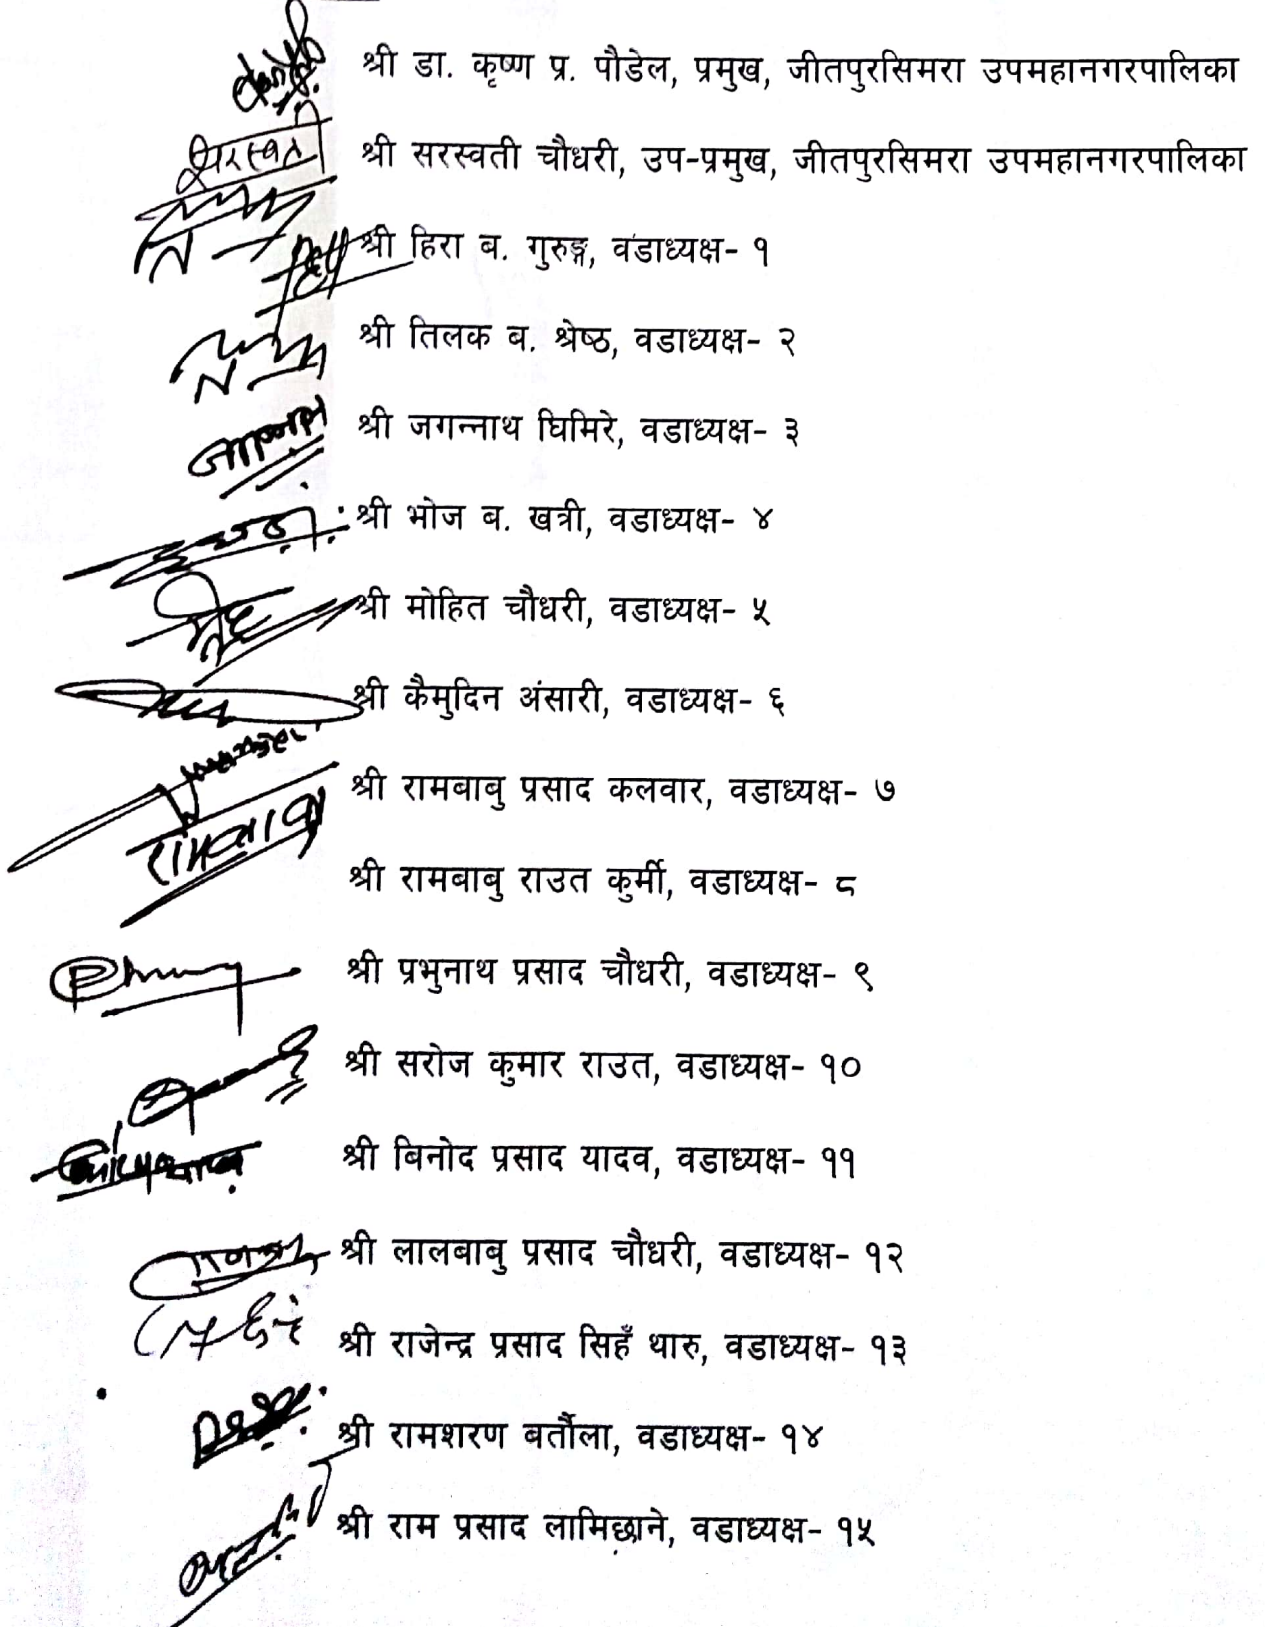 श्री डा. कृष्ण प्र. पौडेल, प्रमुख, जीतपुरसिमरा उपमहानगरपालिका
सरस्वती श्री सरस्वती चौधरी, उप-प्रमुख, जीतपुरसिमरा उपमहानगरपालिका
श्री हिरा ब. गुरुङ्ग, वडाध्यक्ष- १
श्री तिलक ब. श्रेष्ठ, वडाध्यक्ष- २
श्री जगन्नाथ घिमिरे, वडाध्यक्ष- ३
श्री भोज ब. खत्री, वडाध्यक्ष- ४
श्री मोहित चौधरी, वडाध्यक्ष- ५
श्री कैमुदिन अंसारी, वडाध्यक्ष- ६
श्री रामबाबु प्रसाद कलवार, वडाध्यक्ष- ७
रामबाबु
श्री रामबाबु राउत कुर्मी, वडाध्यक्ष- ८
श्री प्रभुनाथ प्रसाद चौधरी, वडाध्यक्ष- ९
श्री सरोज कुमार राउत, वडाध्यक्ष- १०
श्री बिनोद प्रसाद यादव, वडाध्यक्ष- ११
श्री लालबाबु प्रसाद चौधरी, वडाध्यक्ष- १२
श्री राजेन्द्र प्रसाद सिहँ थारु, वडाध्यक्ष- १३
श्री रामशरण बर्तौला, वडाध्यक्ष- १४
श्री राम प्रसाद लामिछाने, वडाध्यक्ष- १५